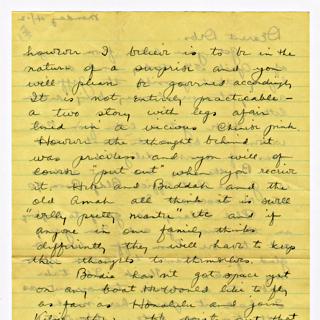 however I believe is to be in the
nature of a surprise and you
will please be governed accordingly
It is not entirely practicable -
a two story with legs affair
lined in a vicious Chinese pink.
However the thought behind it
was priceless and you will of
course "put out" when you recieve
it. Hih and Buddah and the
old Amah all think it is swell
"velly pretty" etc and if
anyone in our family thinks
differently they will have to keep
their thoughts to themselves.
hasn't got space yet
on any boat. He would like to fly
as far as Honolulu and join
that